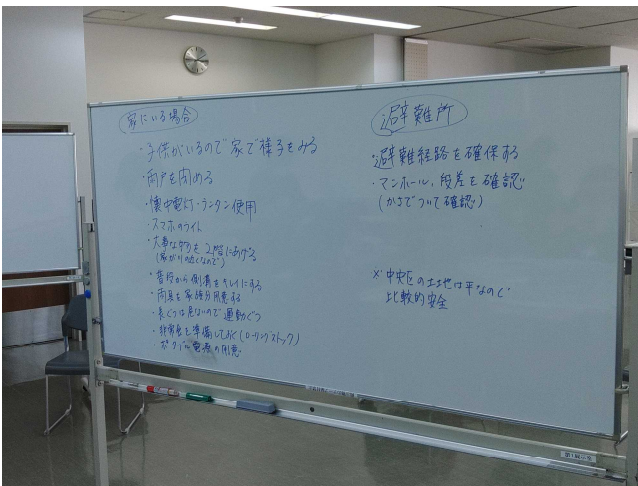 家にいる場合
・子供がいるので家で様子をみる
・雨戸を閉める
・懐中電灯・ランタン使用
・スマホのライト
・大事なものを2階にあげる
(家が川の近くなので)
・普段から側溝をキレイにする
・雨具を家族分用意する
・長ぐつは危ないので運動ぐつ
・非常食を準備しておく(ローリングストック)
・ポータブル電源の用意
避難所
避難経路を確保する
・マンホール、段差を確認
(かさでついて確認)
※中央区の土地は平なので
比較的安全